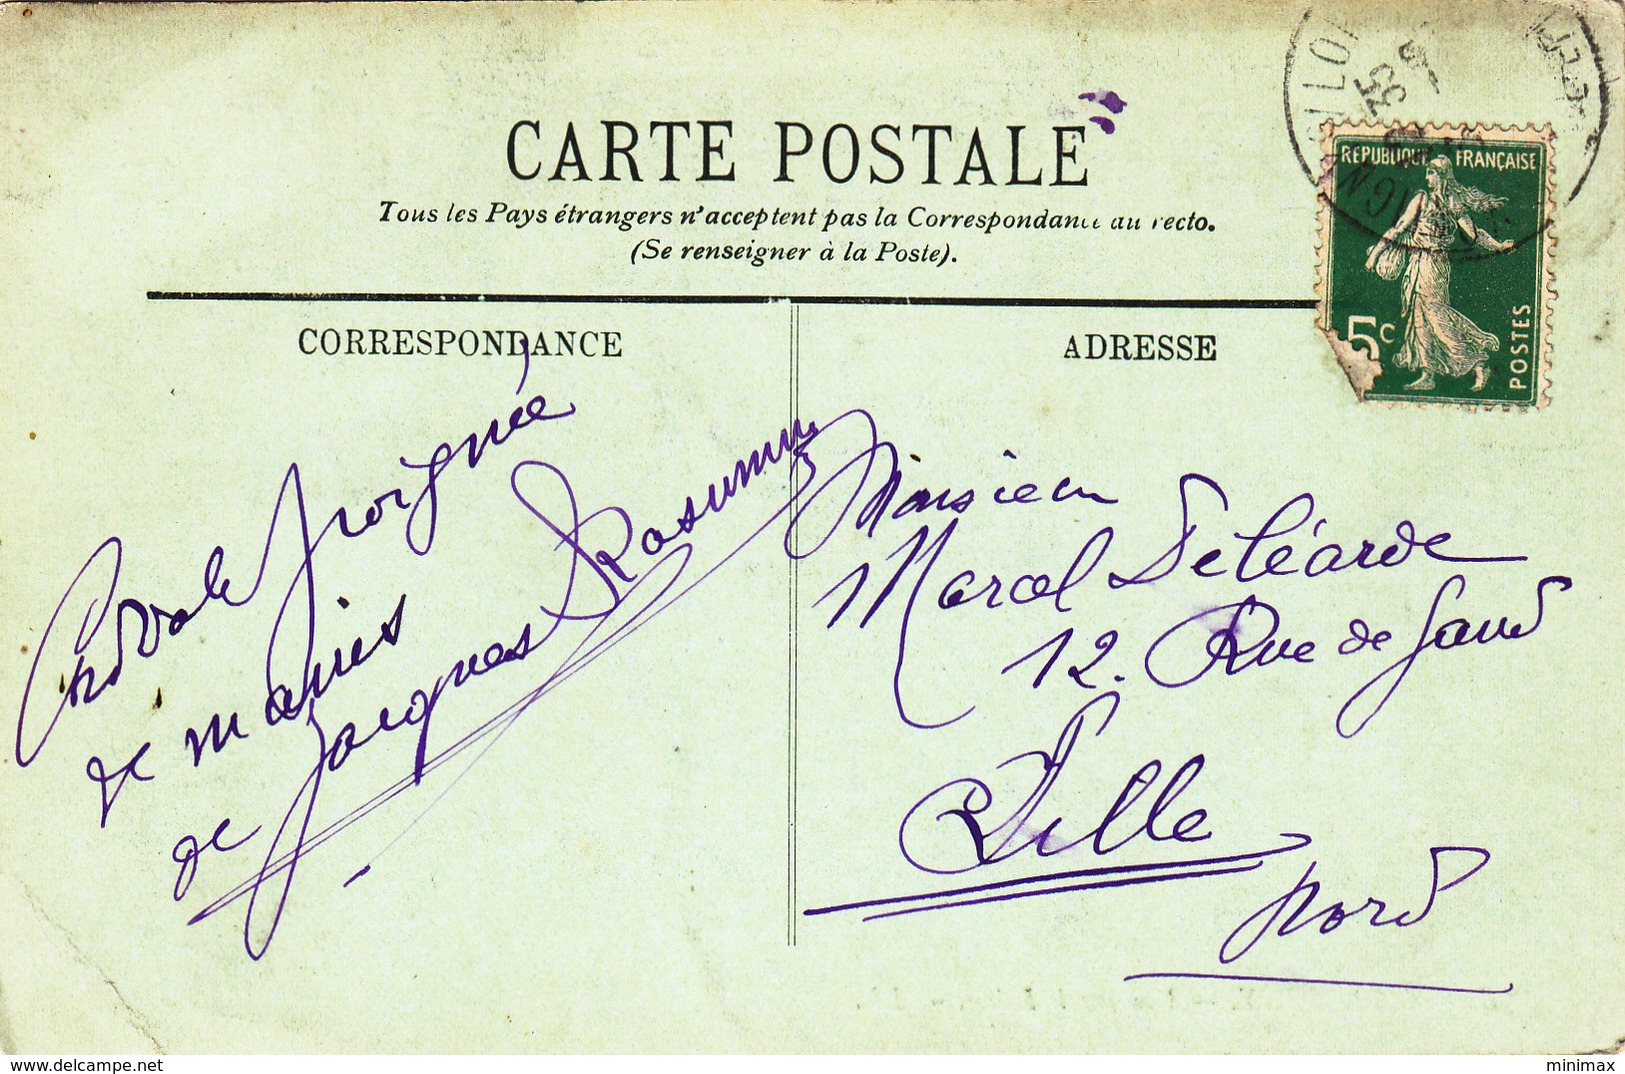 CARTE POSTALE
Tous les Pays étrangers n'acceptent pas la Correspondance au recto.
(Se renseigner à la Poste).
CORRESPONDANCE
ADRESSE
REPUBLIQUE FRANÇAISE
5c
POSTES
Cordiale poignée
de mains
de Jacques
Monsieur
Marcel Deléarde
12. Rue de Gand
Lille
Nord
www.delcampe.net
minimax